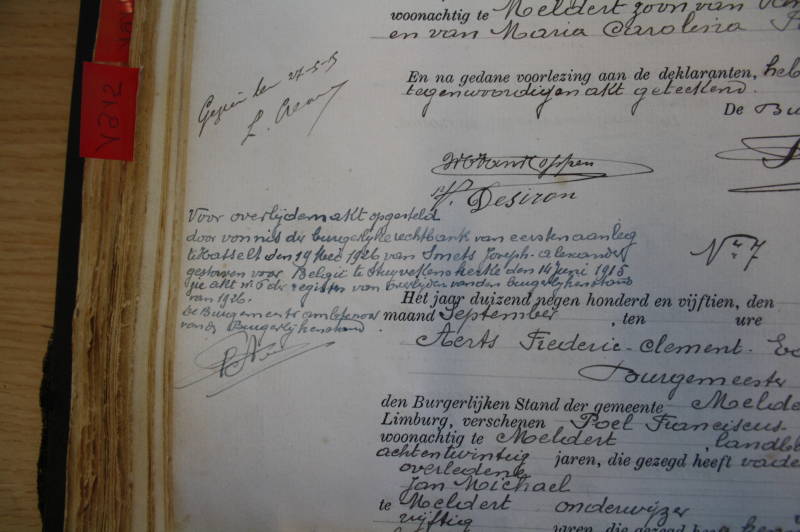 woonachtig te Meldert zoon van Van
en van Maria Carolina
En na gedane voorlezing aan de deklaranten, heb
tegenwoordigen akt geteekend.
De Bu
Gezien den 27-5-5
L.
V812
Desiron
Voor overlijdensakt opgesteld
door vonnis der burgerlijke rechtbank van eersten aanleg
te Hasselt den 29 Dec 1926 van Smets Joseph-Alexander
gestorven voor België te Stuyvekenskerke den 14 Juni 1915
zie akt nº 6 der register van overlijden van den burgerlijken stand
van 1926.
De Burgemeester ambtenaar
van den Burgerlijken stand.
Nr 7
Het jaar duizend negen honderd en vijftien, den
maand September , ten ure
Aerts Frederic-Clement.
Burgemeester
den Burgerlijken Stand der gemeente Melde
Limburg, verschenen Poel Franciscus
woonachtig te Meldert , landb
achtentwintig jaren, die gezegd heeft vade
overledene
Jan Michael
te Meldert onderwijzer
vijftig jaren, die gezegd